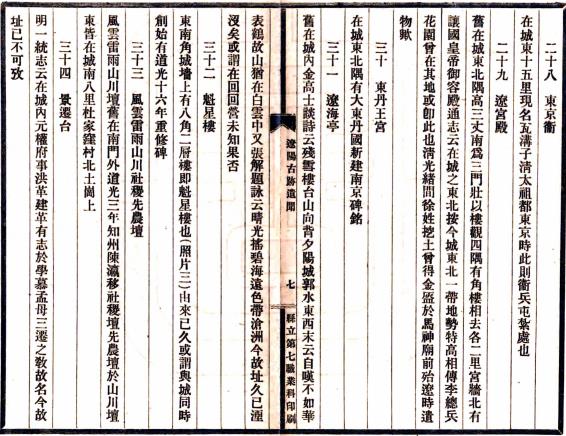 二十八　東京衞
在城東十五里現名瓦溝子淸太祖都東京時此則衞兵屯紮處也
二十九　遼宮殿
舊在城東北隅高三丈南爲三門壯以樓觀四隅有角樓相去各二里宮牆北有
讓國皇帝御容殿通志云在城之東北按今城東北一帶地勢特高相傳李總兵
花園曾在其地或卽此也淸光緖間徐姓挖土曾得金盌於馬神廟前殆遼時遺
物歟
三十　東丹王宮
在城東北隅有大東丹國新建南京碑銘
三十一　遼海亭
舊在城內金高士談詩云殘雪樓台山向背夕陽城郭水東西末云自嘆不如華
遼陽古跡遺聞
七
縣立第七職業科印刷
表鶴故山猶在白雲中又張解題詠云晴光搖碧海遠色帶滄洲今故址久已湮
沒矣或謂在回回營未知果否
三十二　魁星樓
東南角城墻上有八角二層樓卽魁星樓也（照片三）由來已久或謂與城同時
創始有道光十六年重修碑
三十三　風雲雷雨山川社稷先農壇
風雲雷雨山川壇舊在南門外道光三年知州陳瀛移社稷壇先農壇於山川壇
東皆在城南八里杜家窪村北土崗上
三十四　景遷台
明一統志云在城內元權府事洪革建革有志於學慕孟母三遷之敎故名今故
址已不可攷